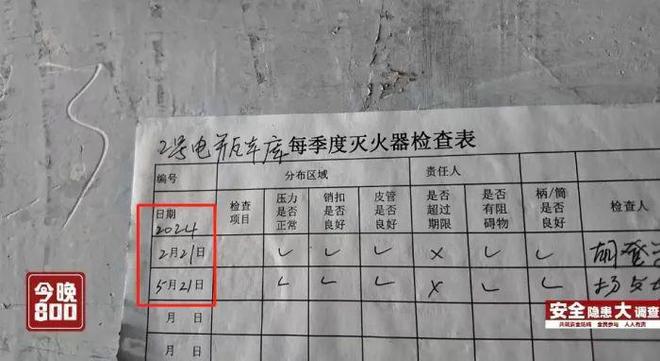 2号电瓶车库每季度灭火器检查表
编号 分布区域 责任人
日期 2024 检查项目 压力是否正常 销扣是否良好 皮管是否良好 是否超过期限 是否有阻碍物 柄/筒是否良好 检查人
2月21日 ✓ ✓ ✓ × ✓ ✓ 胡登
5月21日 ✓ ✓ ✓ × ✓ ✓ 杨
月 日
月 日
今晚
800
安全隐患大调查
共筑安全防线 全民参与 人人有责